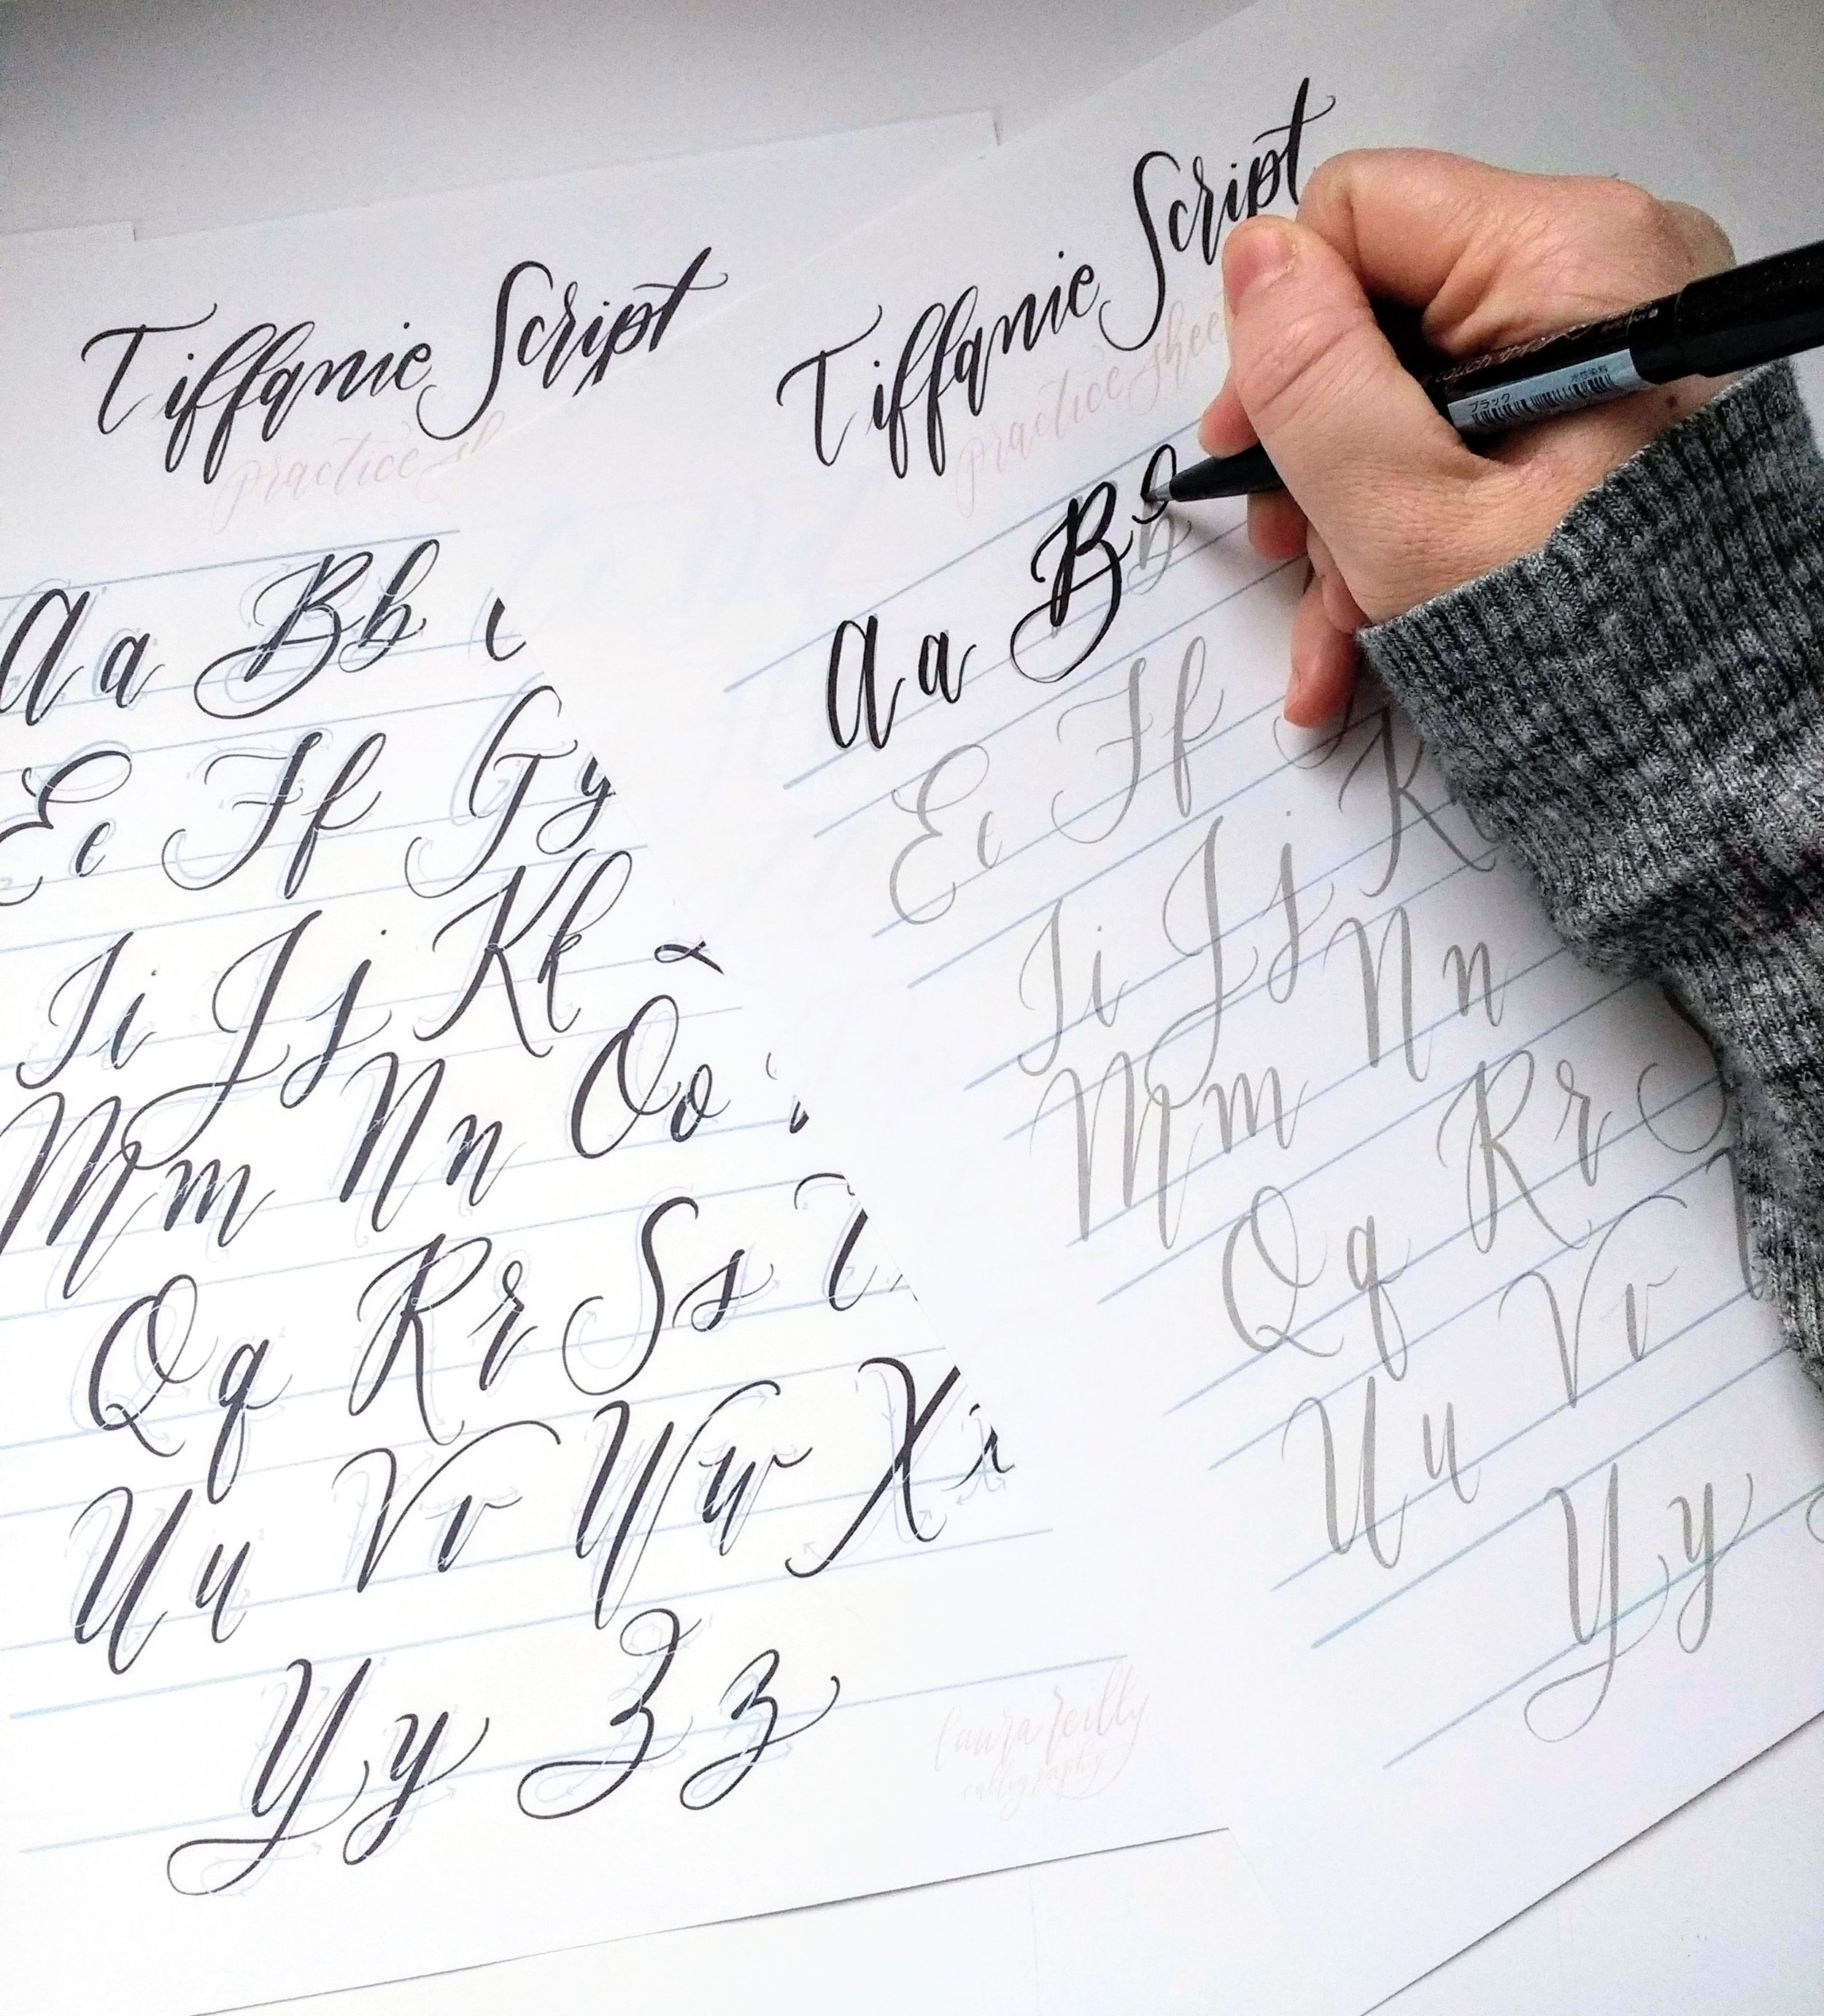 Tiffanie Script
practice
Aa Bb
Ee Ff Gy
Ii Jj Kk
Mm Nn Oo
Qq Rr Ss T
Uu Vv Ww X
Yy Zz
laura reilly
calligraphy
Tiffanie Script
practice sheet
Aa Bb
Ee Ff
Ii Jj K
Mm Nn
Qq Rr
Uu Vv
Yy
ブラック